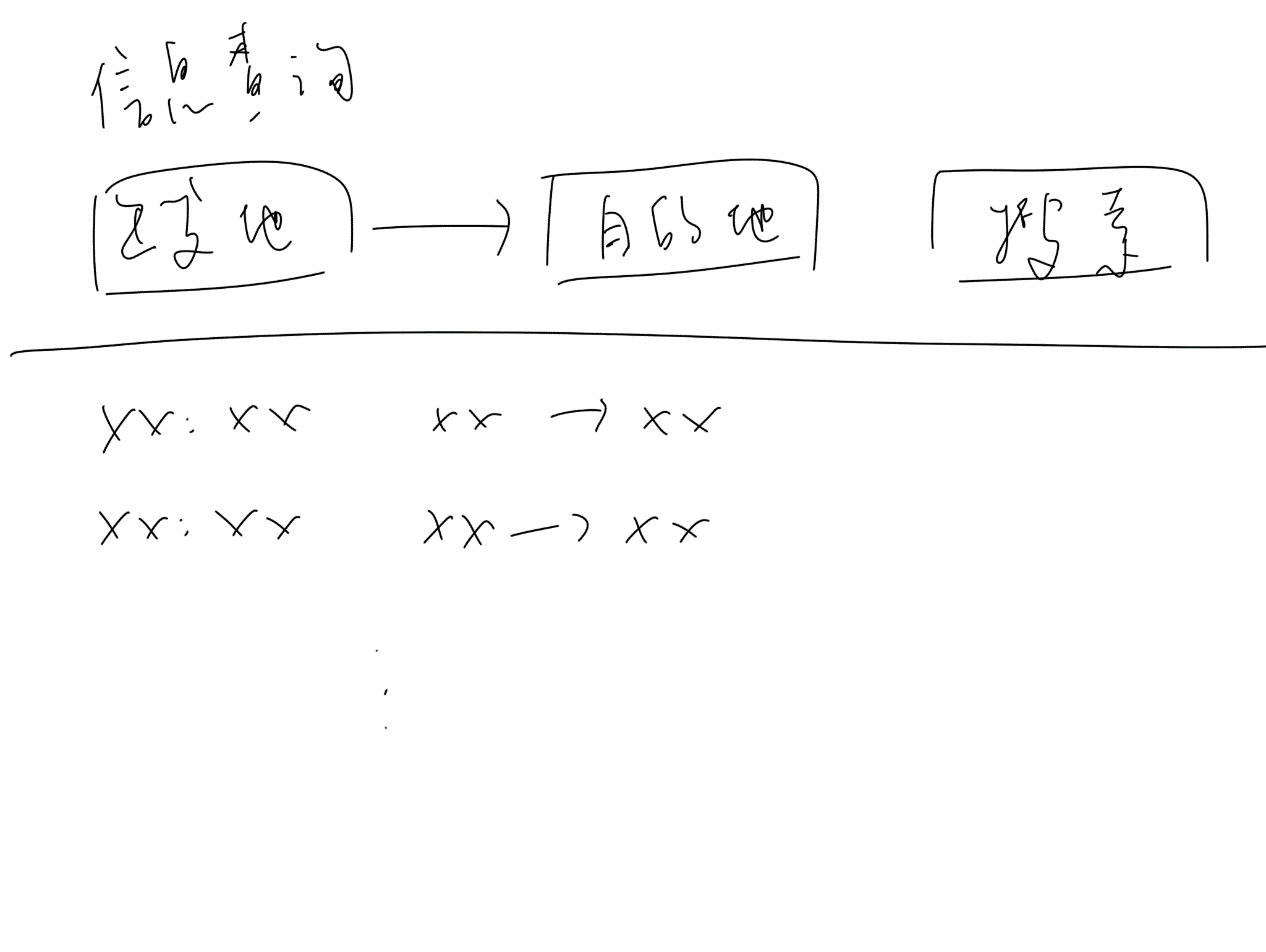 信息查询
出发地 → 目的地 搜索
xx: xx xx → xx
xx: xx xx → xx